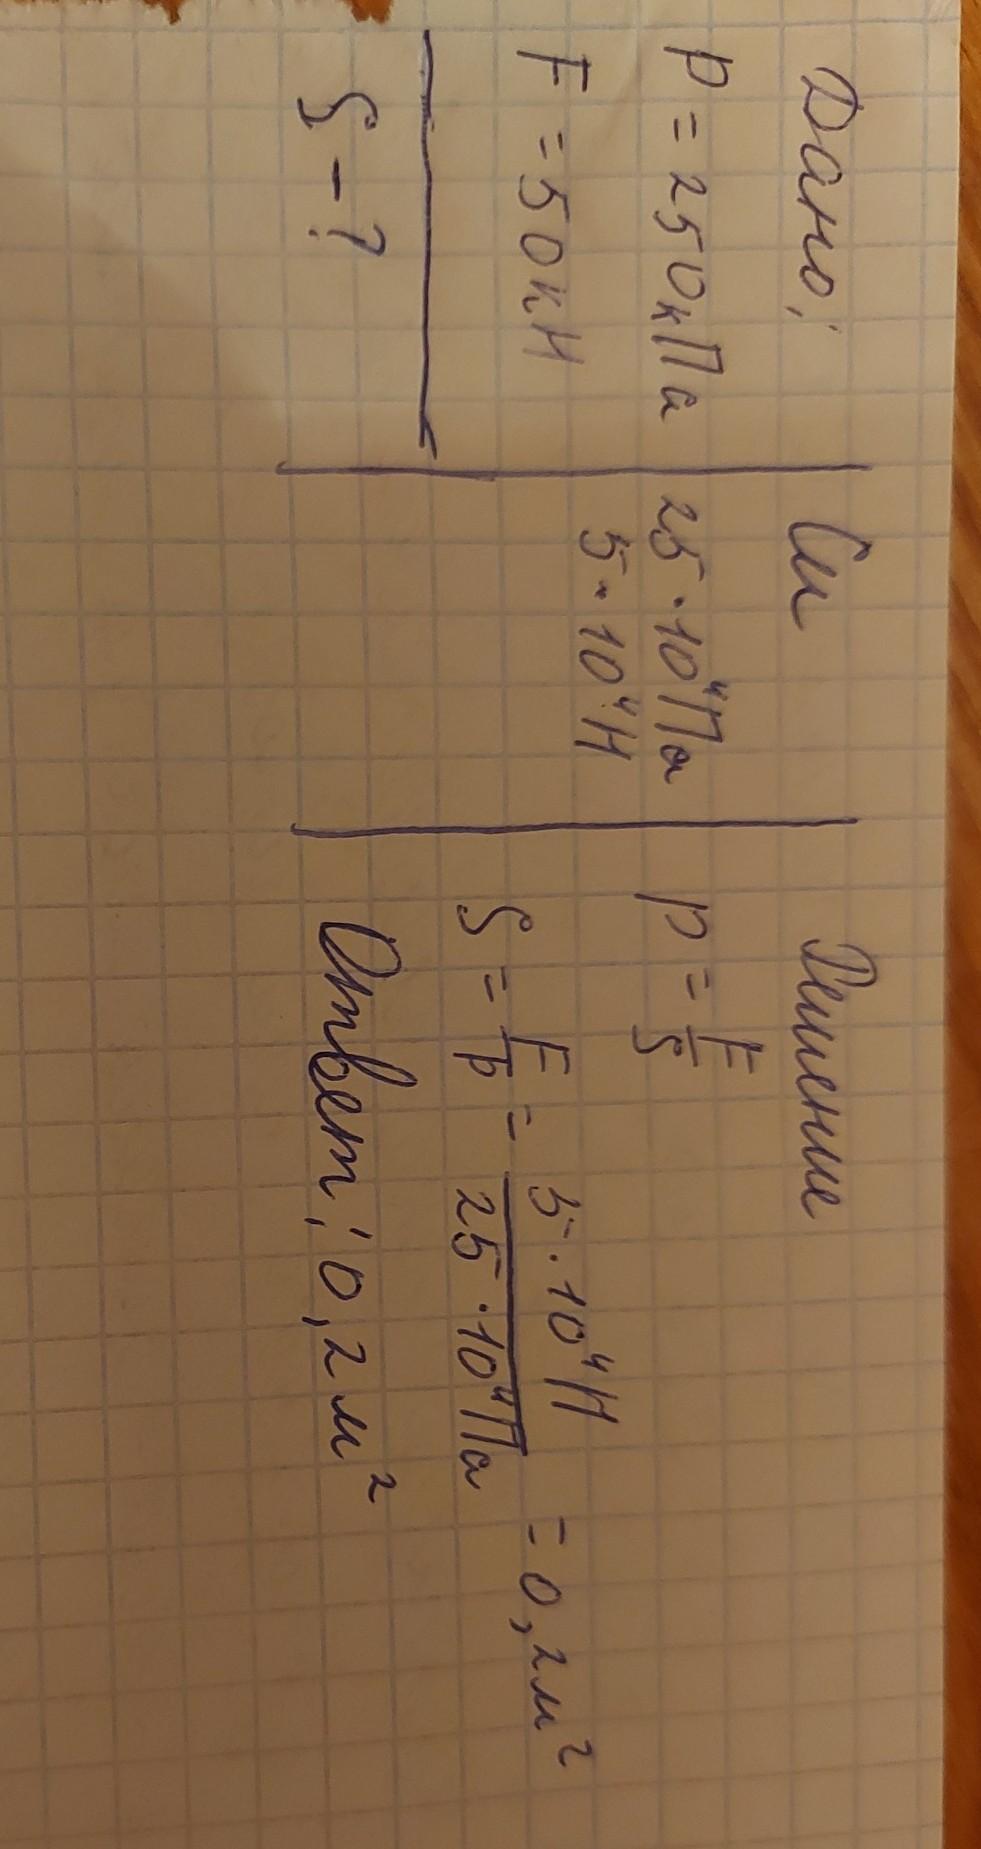 Дано:
p = 250кПа
F = 50кН
S - ?
Си
25 · 10⁴Па
5 · 10⁴Н
Решение
p = F/S
S = F/p = 5 · 10⁴Н / 25 · 10⁴Па = 0,2м²
Ответ: 0,2м²